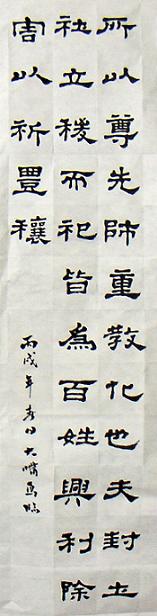 所以尊先師重教化也夫封土
社立稷而祀皆爲百姓興利除
害以祈豐穰
丙戌年春日大嘴馬臨